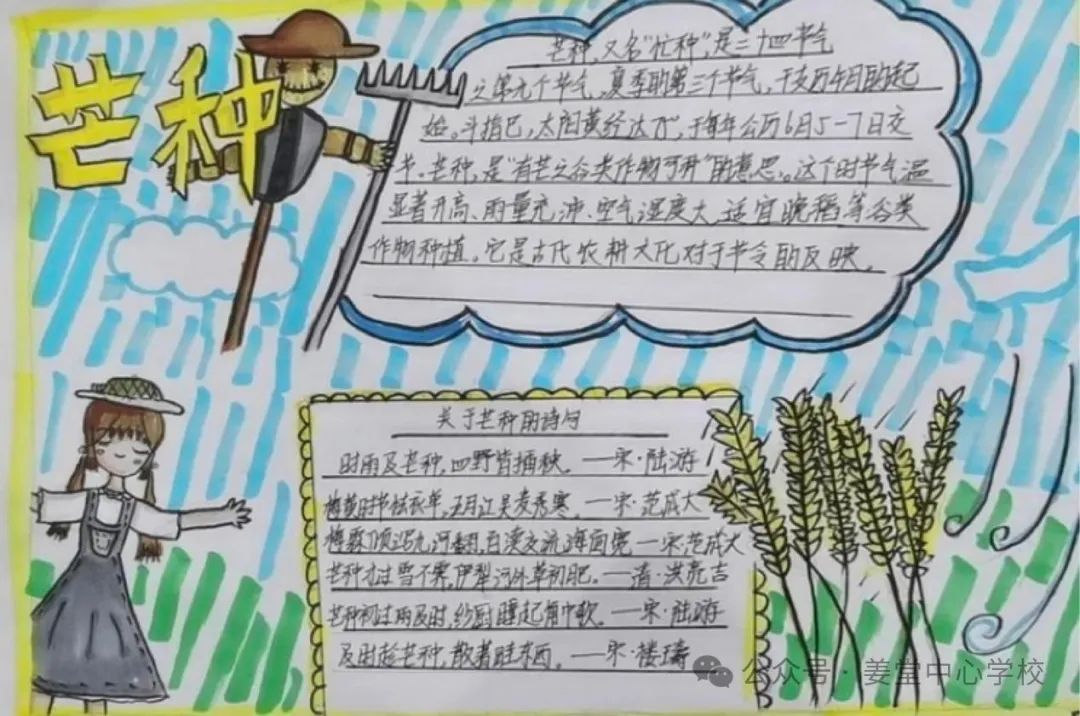 芒种
芒种,又名“忙种”,是二十四节气
之第九个节气,夏季的第三个节气,干支历午月的起
始。斗指巳,太阳黄经达75°,于每年公历6月5-7日交
节。芒种,是“有芒之谷类作物可种”的意思。这个时节气温
显著升高、雨量充沛、空气湿度大,适宜晚稻等谷类
作物种植。它是古代农耕文化对于节令的反映。
关于芒种的诗句
时雨及芒种,四野皆插秧。—宋·陆游
梅黄时节怯衣单,五月江吴麦秀寒。—宋·范成大
梅霖倾泻九河翻,百渎交流海面宽—宋范成大
芒种才过雪不霁,伊犁河外草初肥。—清·洪亮吉
芒种初过雨及时,纱厨睡起角巾欹。—宋·陆游
及时趁芒种,散著畦东西。—宋·楼璹
公众号·姜堂中心学校